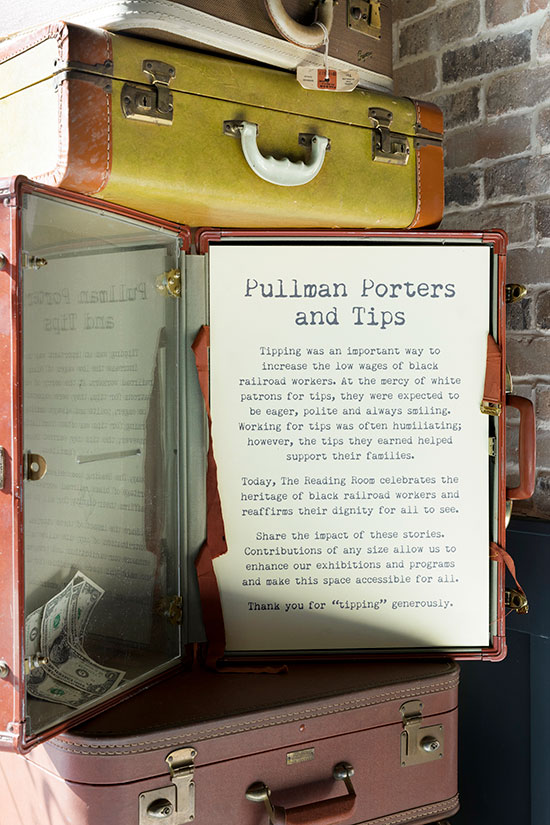 Pullman Porters
and Tips
Tipping was an important way to
increase the low wages of black
railroad workers. At the mercy of white
patrons for tips, they were expected to
be eager, polite and always smiling.
Working for tips was often humiliating;
however, the tips they earned helped
support their families.
Today, The Reading Room celebrates the
heritage of black railroad workers and
reaffirms their dignity for all to see.
Share the impact of these stories.
Contributions of any size allow us to
enhance our exhibitions and programs
and make this space accessible for all.
Thank you for “tipping” generously.